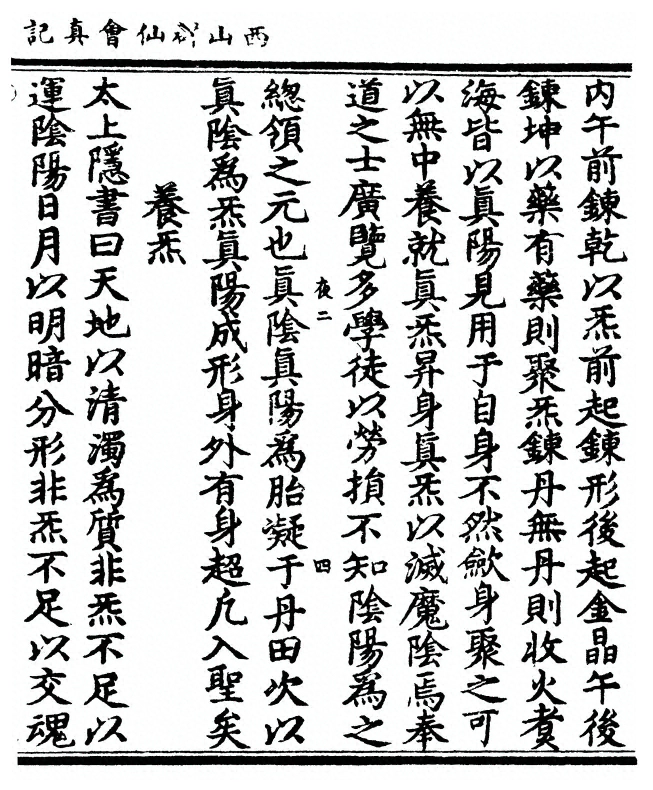 西山仙會真記
内午前鍊乾以炁前起鍊形後起金晶午後
鍊坤以藥有藥則聚炁鍊丹無丹則收火煑
海皆以眞陽見用于自身不然歛身聚之可
以無中養就眞炁昇身眞炁以滅魔陰焉奉
道之士廣覽多學徒以勞損不知陰陽爲之
夜二 四
總領之元也眞陰眞陽爲胎凝于丹田次以
眞陰爲炁眞陽成形身外有身超凡入聖矣
養炁
太上隱書曰天地以清濁爲質非炁不足以
運陰陽日月以明暗分形非炁不足以交魂